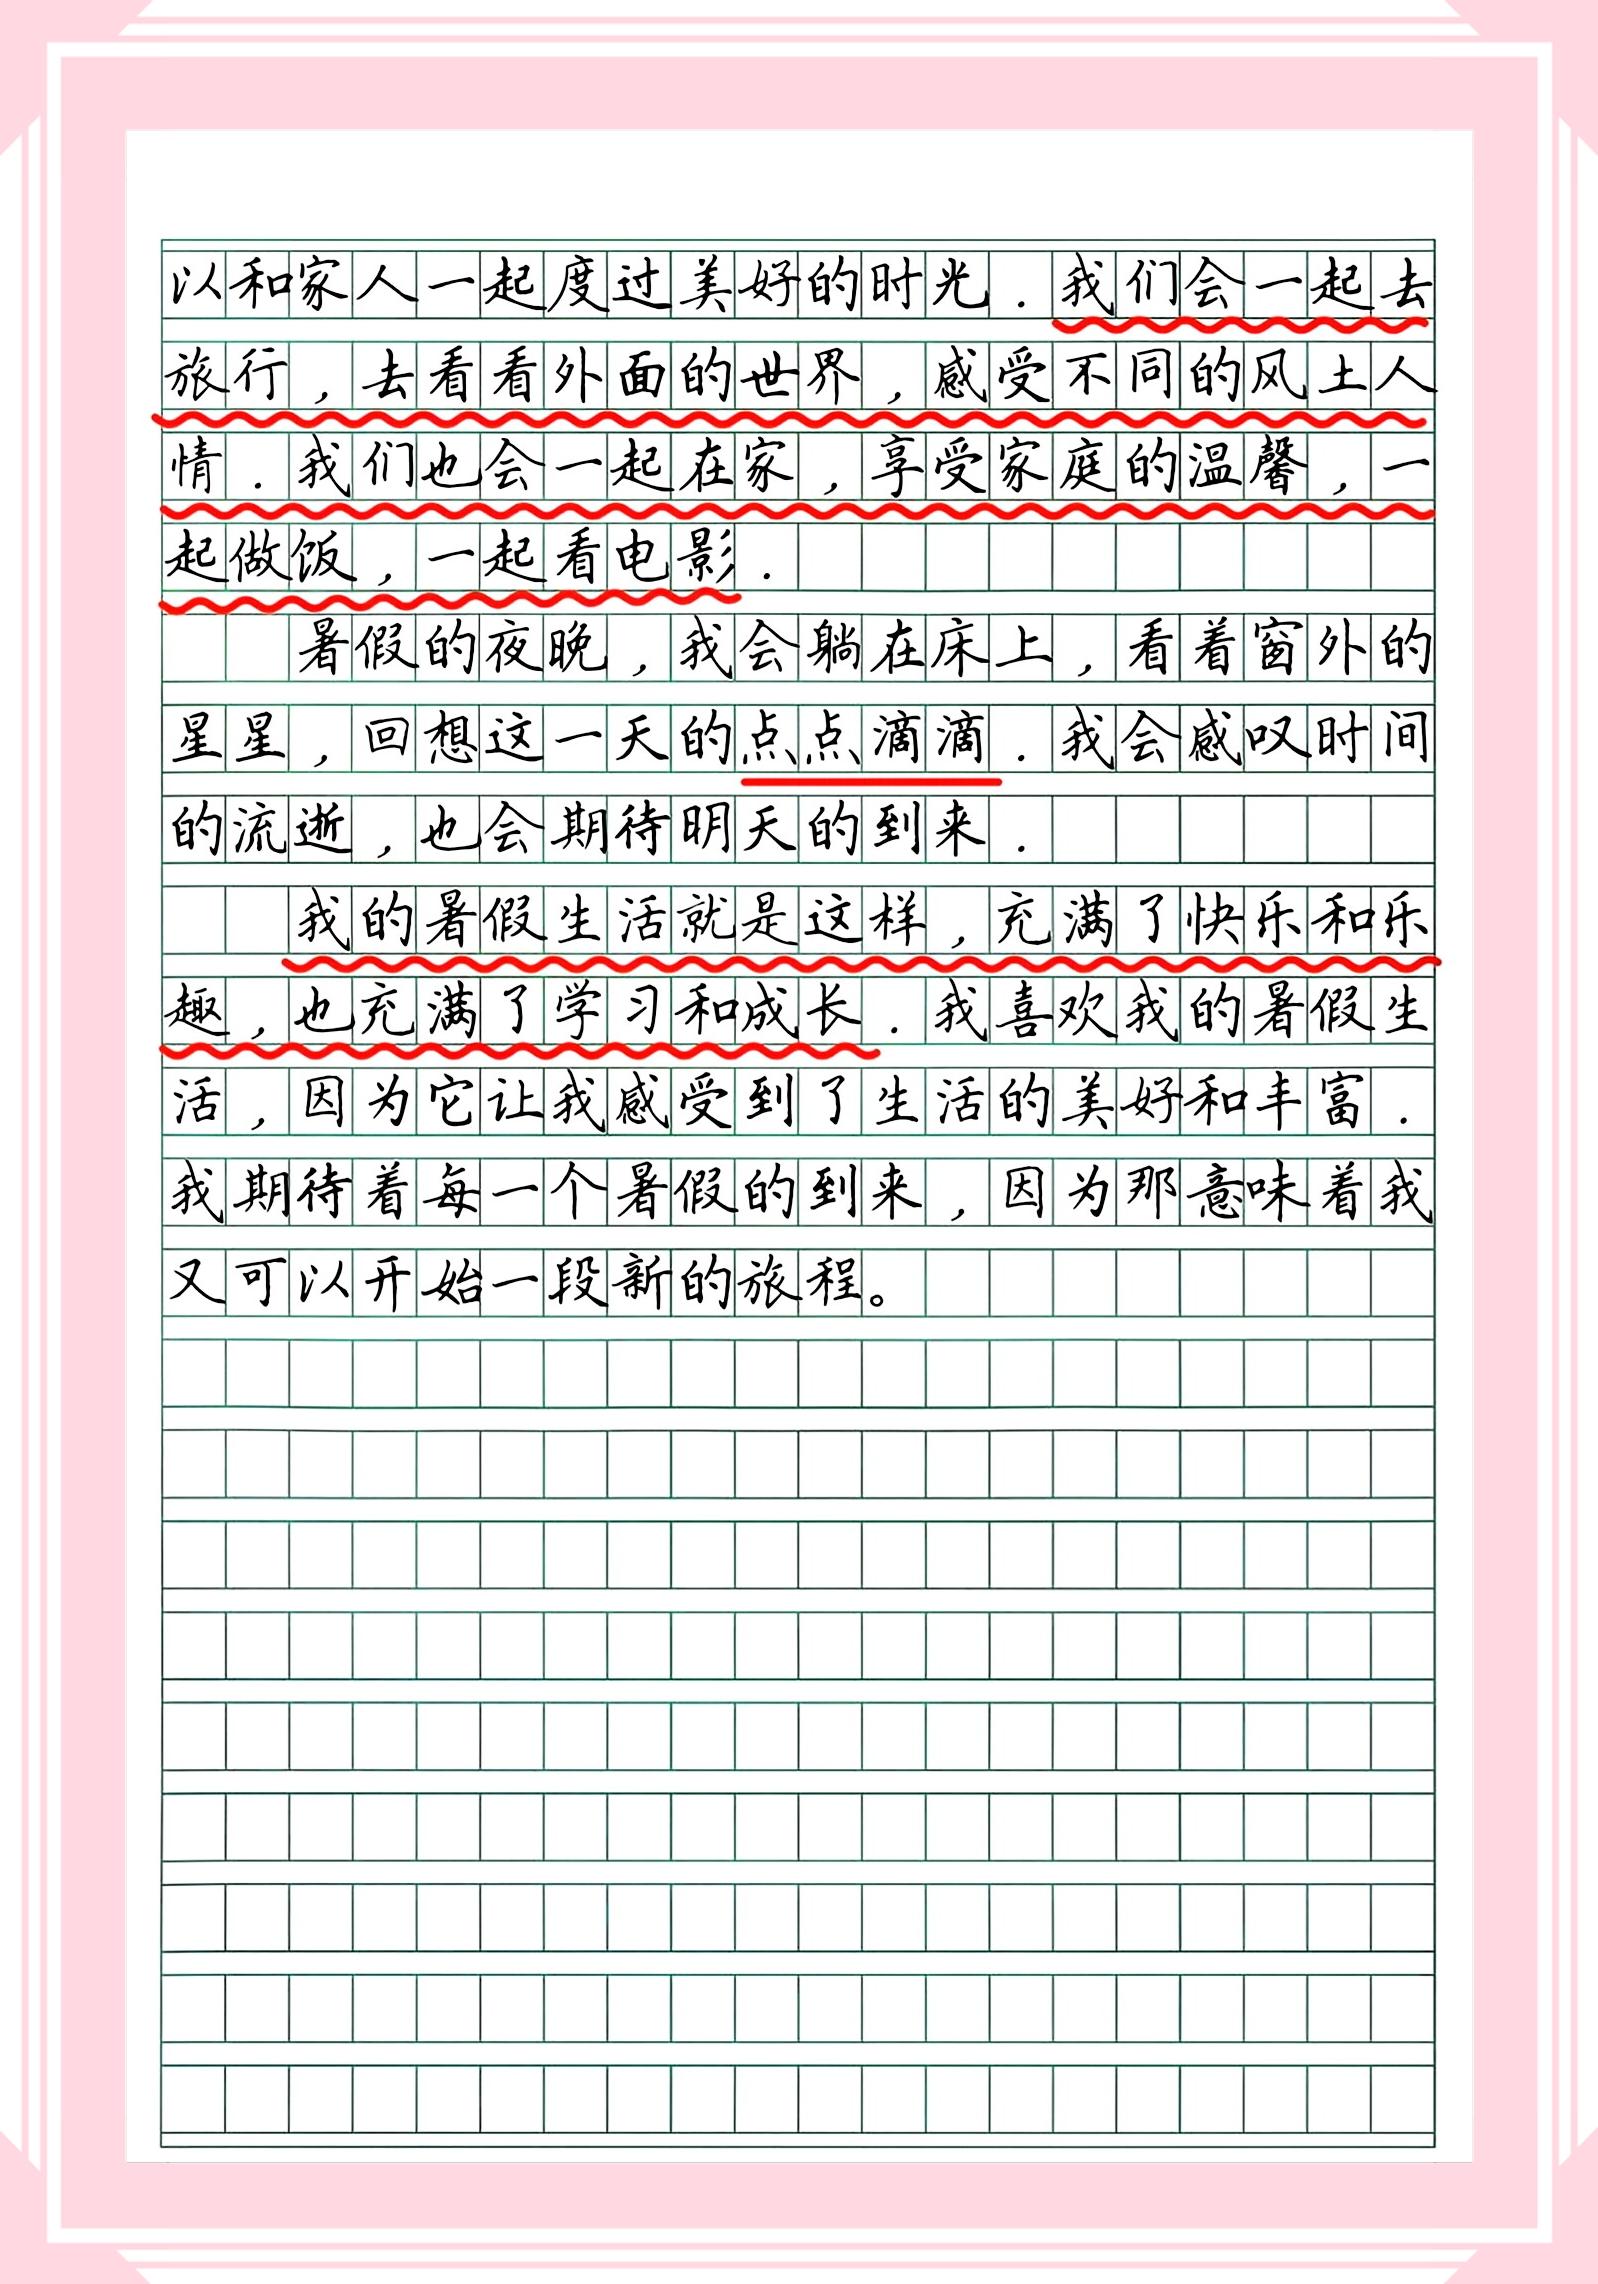 以和家人一起度过美好的时光.我们会一起去
旅行,去看看外面的世界,感受不同的风土人
情.我们也会一起在家,享受家庭的温馨,一
起做饭,一起看电影.
暑假的夜晚,我会躺在床上,看着窗外的
星星,回想这一天的点点滴滴.我会感叹时间
的流逝,也会期待明天的到来.
我的暑假生活就是这样,充满了快乐和乐
趣,也充满了学习和成长.我喜欢我的暑假生
活,因为它让我感受到了生活的美好和丰富.
我期待着每一个暑假的到来,因为那意味着我
又可以开始一段新的旅程。